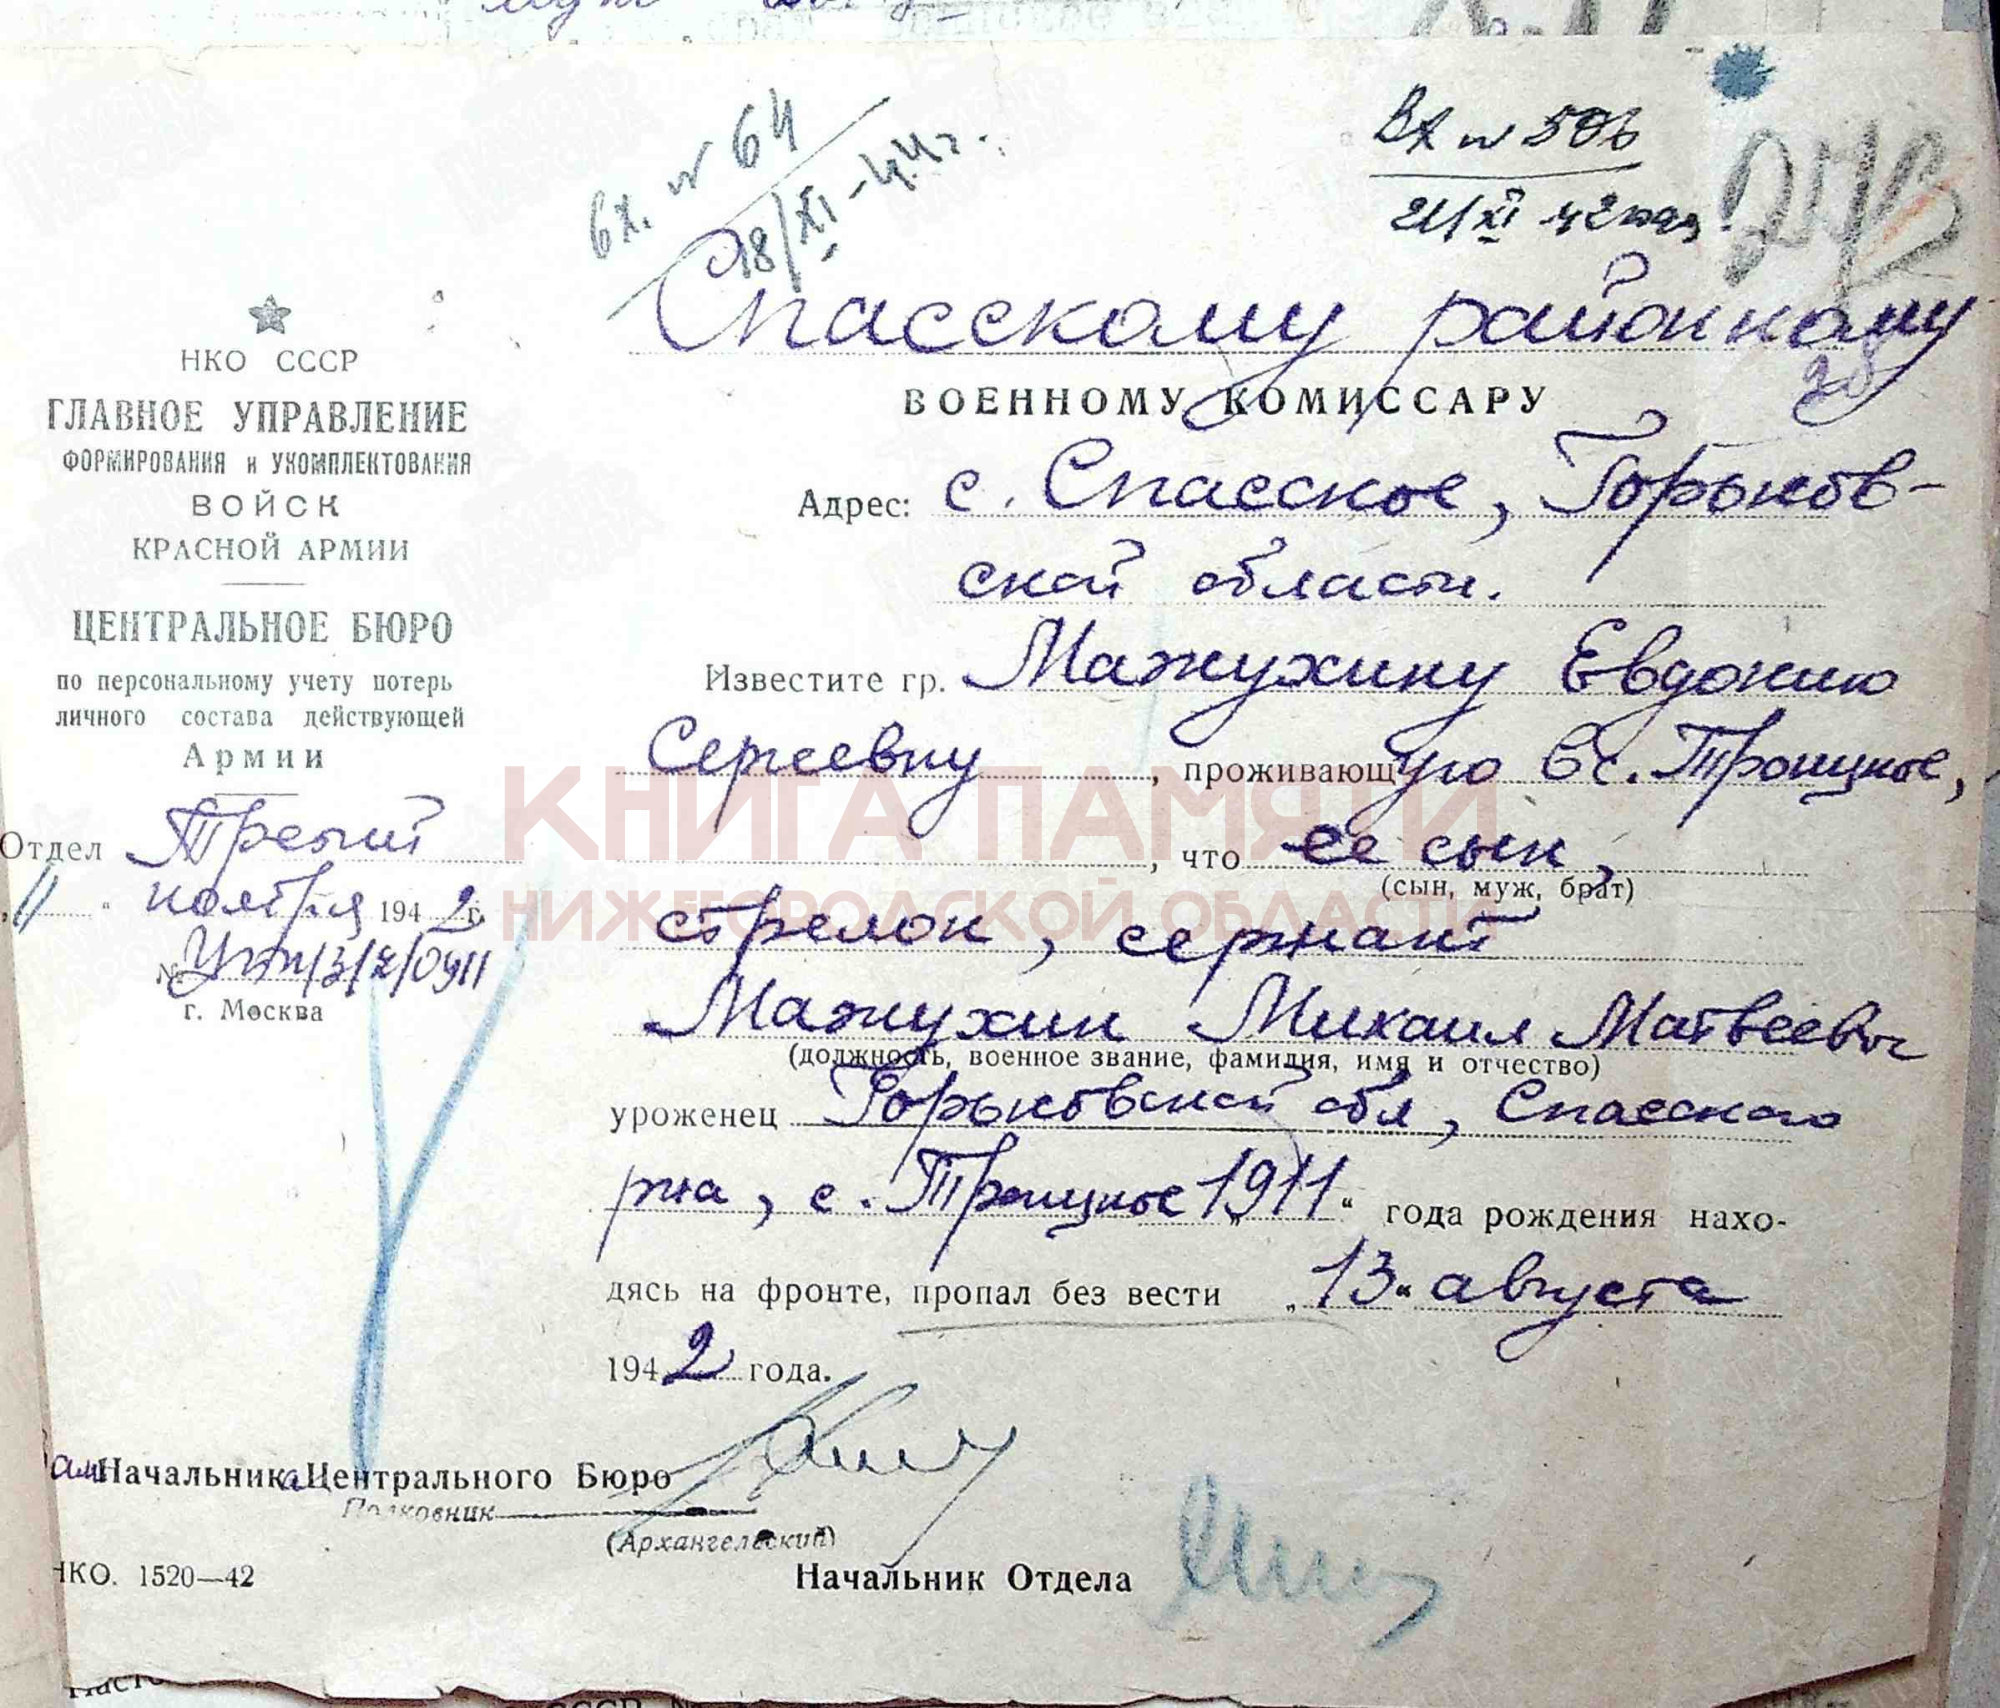 вх. № 64
18/XI-44г.
Вх № 506
21/XI 42
Спасскому районному
ВОЕННОМУ КОМИССАРУ
Адрес: с. Спасское, Горьков-
ской области.
Известите гр. Мажухину Евдокию
Сергеевну, проживающую в с. Троицкое,
, что ее сын,
(сын, муж, брат)
стрелок, сержант
Мажухин Михаил Матвеевич
(должность, военное звание, фамилия, имя и отчество)
уроженец Горьковской обл, Спасского
р-на, с. Троицкое "1911" года рождения нахо-
дясь на фронте, пропал без вести "13" августа
1942 года.
НКО СССР
ГЛАВНОЕ УПРАВЛЕНИЕ
ФОРМИРОВАНИЯ и УКОМПЛЕКТОВАНИЯ
ВОЙСК
КРАСНОЙ АРМИИ
ЦЕНТРАЛЬНОЕ БЮРО
по персональному учету потерь
личного состава действующей
Армии
Отдел Третий
"11" ноября 1942 г.
г. Москва
Зам Начальника Центрального Бюро
Полковник
(Архангельский)
НКО. 1520—42
Начальник Отдела
КНИГА ПАМЯТИ
НИЖЕГОРОДСКОЙ ОБЛАСТИ